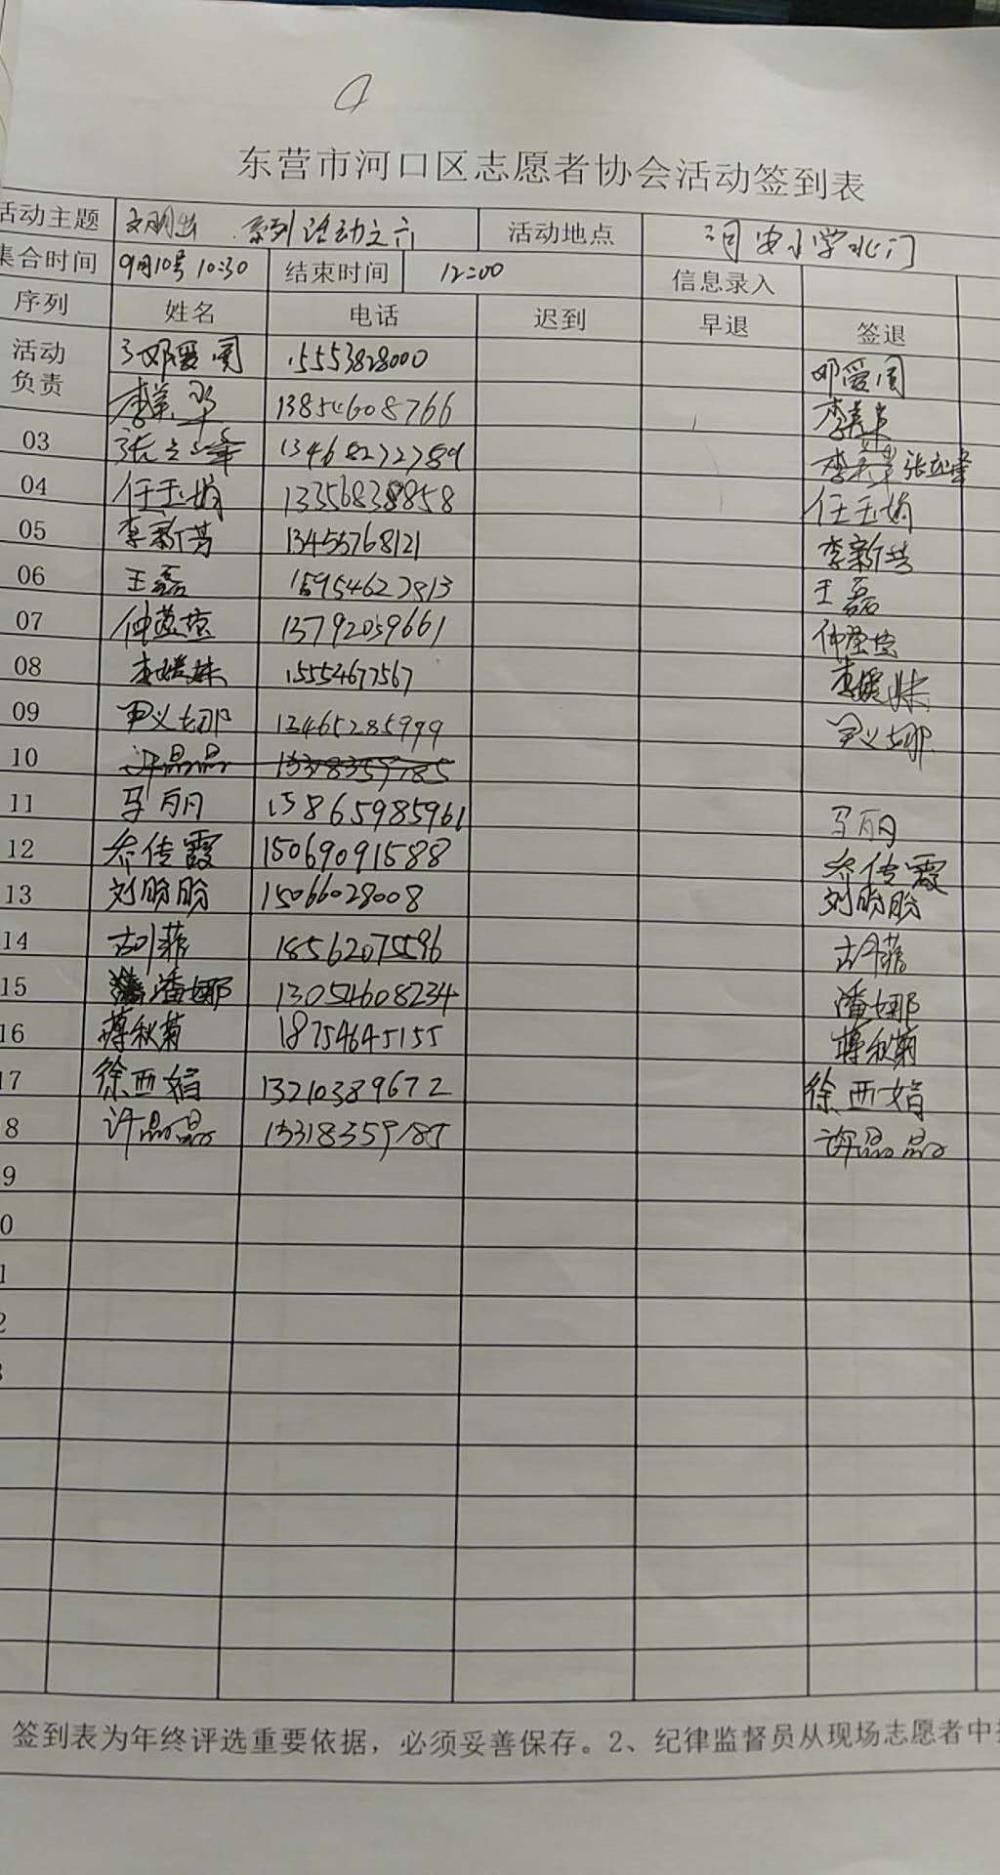 东营市河口区志愿者协会活动签到表
活动主题 文明出 系列活动之六 活动地点 小学北门
集合时间 9月10号 10:30 结束时间 12:00 信息录入
序列 姓名 电话 迟到 早退 签退
活动负责 邓爱国 15553828000 邓爱国
李美翠 13854608766
03 张立峰 13468272789 张立峰
04 任玉娟 13356838858 任玉娟
05 李新芳 13455768121 李新芳
06 王磊 15954627813 王磊
07 13792059661
08 李媛妹 15554677567 李媛妹
09 尹义娜 13465285999 尹义娜
10 许晶晶 13318359785
11 马丽 15865985961 马丽
12 乔传霞 15069091588 乔传霞
13 刘盼盼 15066028008 刘盼盼
14 18562075596
15 潘娜 13054608234 潘娜
16 蒋秋菊 18754645155 蒋秋菊
17 徐西娟 13210389672 徐西娟
8 许晶晶 13318359785 许晶晶
9
0
1
2
签到表为年终评选重要依据，必须妥善保存。2、纪律监督员从现场志愿者中